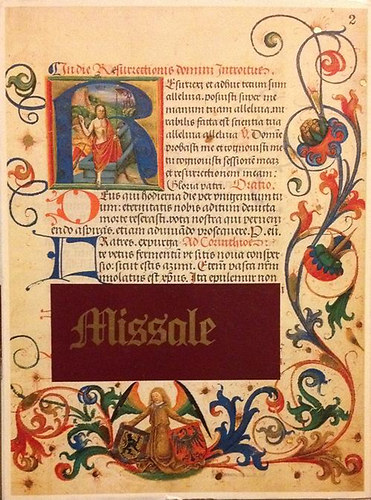 2
In die Resurrectionis domini Introitus.
Resurrexi et adhuc tecum sum
alleluia. posuisti super me
manum tuam alleluia. mi
rabilis facta est scientia tua
alleluia alleluia V. Domine
probasti me et cognouisti me
tu cognouisti sessionē meā
et resurrectionem meam.
Gloria patri. Oratio.
Deus qui hodierna die per unigenitum tu
um: eternitatis nobis aditum deuicta
morte reserasti. vota nostra que preueni
endo aspiras. etiam adiuuando prosequere. P. eū
Fratres. expurga Ad Corinthios
te vetus fermentū vt sitis noua consper
sio: sicut estis azimi. Etenī pasca nrm
immolatus est xp̄us. Ita epulemur non
Missale